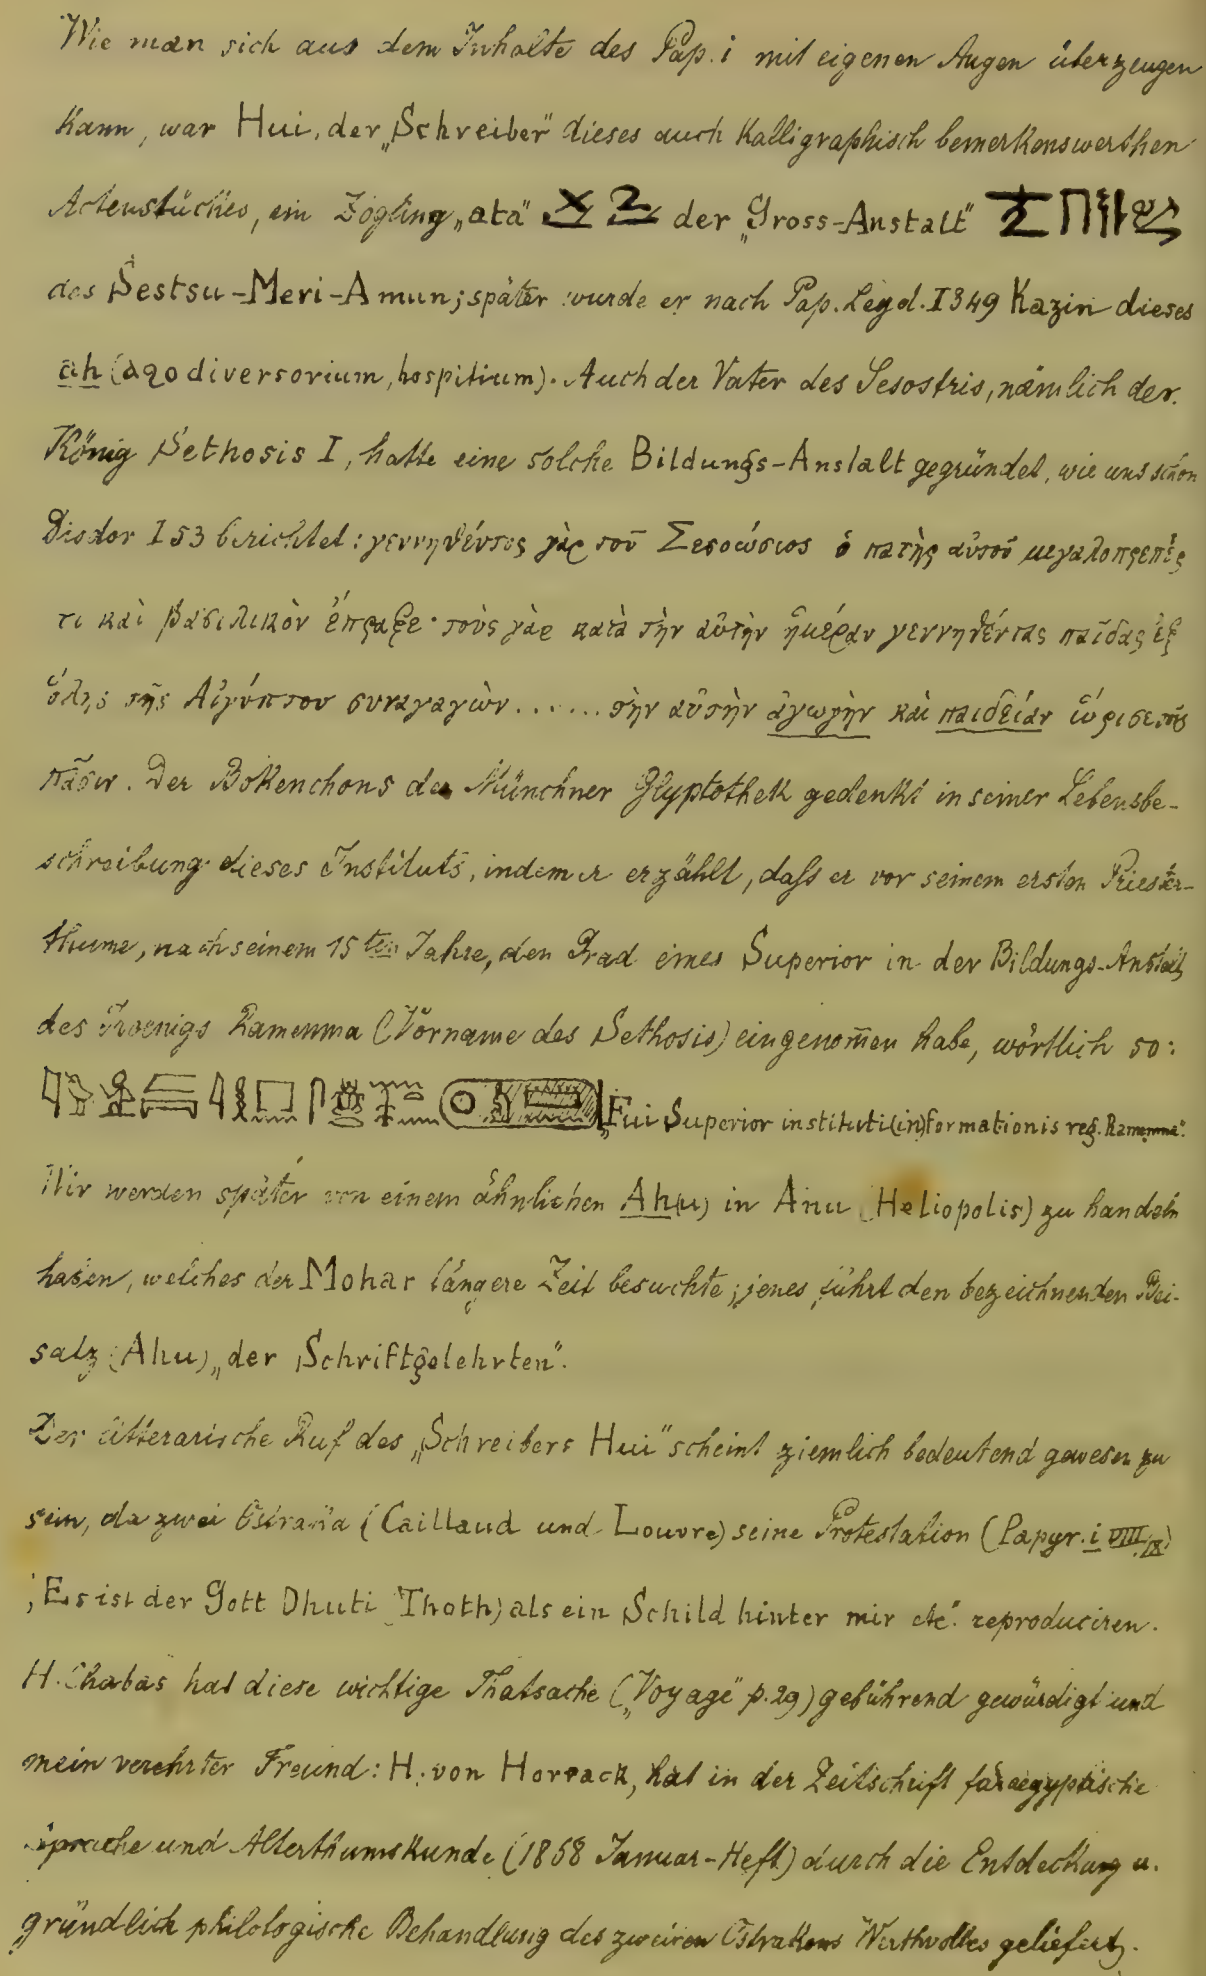 Wie man sich aus dem Inhalte des Pap. i mit eigenen Augen überzeugen
kann, war Hui, der „Schreiber“ dieses auch kalligraphisch bemerkenswerthen
Actenstückes, ein Zögling „ata“ der „Gross-Anstalt“
des Sestsu-Meri-Amun; später wurde er nach Pap. Leyd. I 349 Kazin dieses
ah (aqo diversorium, hospitium). Auch der Vater des Sesostris, nämlich der
König Sethosis I, hatte eine solche Bildungs-Anstalt gegründet, wie uns schon
Diodor I 53 berichtet: γεννηθέντος γὰρ τοῦ Σεσοώσιος ὁ πατὴρ αὐτοῦ μεγαλοπρεπές
τι καὶ βασιλικὸν ἔπραξε· τοὺς γὰρ κατὰ τὴν αὐτὴν ἡμέραν γεννηθέντας παῖδας ἐξ
ὅλης τῆς Αἰγύπτου συναγαγὼν ...... τὴν αὐτὴν ἀγωγὴν καὶ παιδείαν ὥρισε τοῖς
πᾶσιν. Der Bokenchons der Münchner Glyptothek gedenkt in seiner Lebensbe-
schreibung dieses Instituts, indem er erzählt, daſs er vor seinem ersten Priester-
thume, nach seinem 15ten Jahre, den Grad eines Superior in der Bildungs-Anstalt
des Koenigs Ramenma (Vorname des Sethosis) eingenom̄en habe, wörtlich so:
„Fui Superior instituti (in)formationis reg. Ramenma“.
Wir werden später von einem ähnlichen Ah(u) in Anu (Heliopolis) zu handeln
haben, welches der Mohar längere Zeit besuchte; jenes führt den bezeichnenden Bei-
satz (Ahu) „der Schriftgelehrten“.
Der litterarische Ruf des „Schreibers Hui“ scheint ziemlich bedeutend gewesen zu
sein, da zwei Ostraka (Caillaud und Louvre) seine Protestation (Papyr. i VIII, IX)
„Es ist der Gott Dhuti (Thoth) als ein Schild hinter mir etc“. reproduciren.
H. Chabas hat diese wichtige Thatsache („Voyage“ p. 29) gebührend gewürdigt und
mein verehrter Freund: H. von Horrack, hat in der Zeitschrift für aegyptische
Sprache und Alterthumskunde (1868 Januar-Heft) durch die Entdeckung u.
gründlich philologische Behandlung des zweiten Ostrakons Werthvolles geliefert.